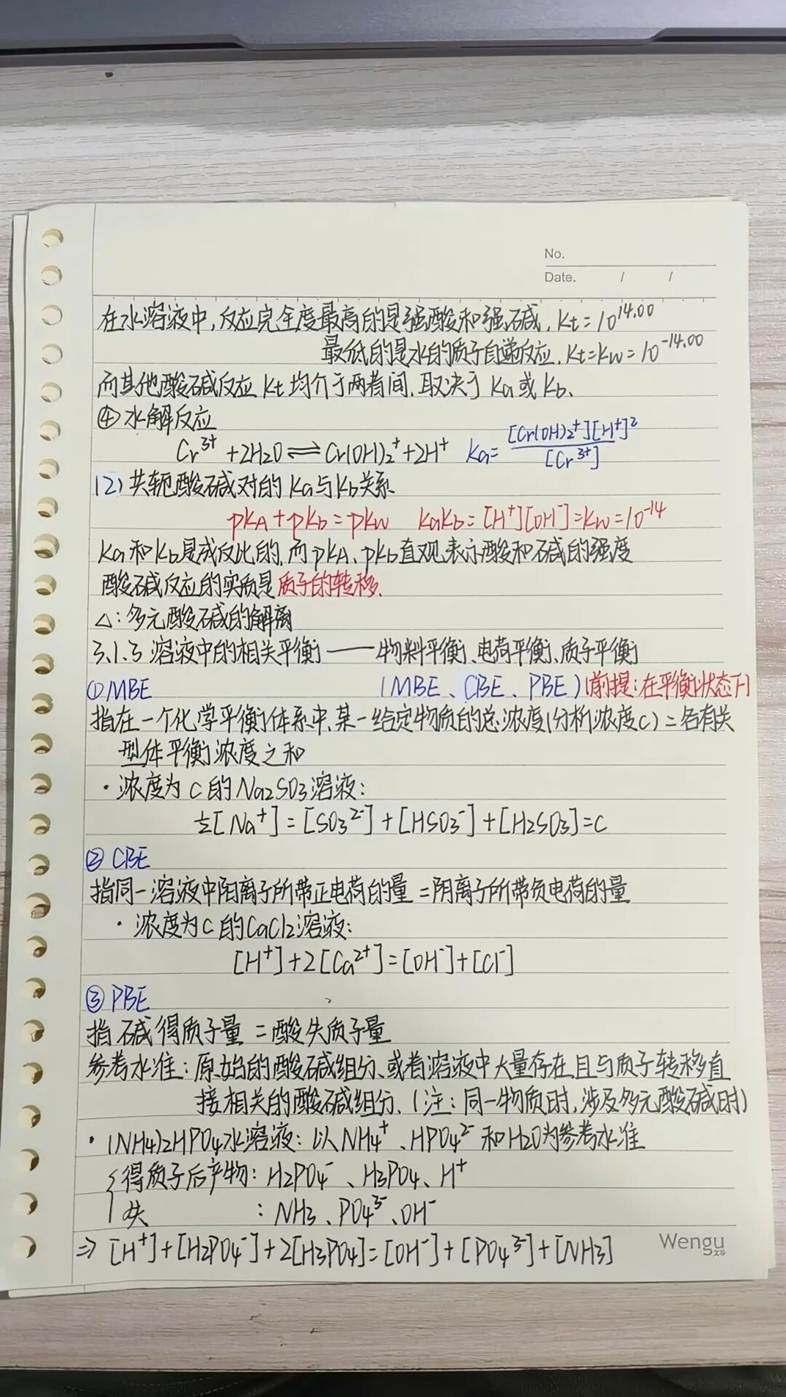 No.
Date. / /
在水溶液中,反应完全度最高的是强酸和强碱,Kt=10^14.00
最低的是水的质子自递反应,Kt=Kw=10^-14.00
而其他酸碱反应Kt均介于两者间,取决于Ka或Kb、
④水解反应
Cr³⁺+2H₂O⇌Cr(OH)₂⁺+2H⁺ Ka=[Cr(OH)₂⁺][H⁺]²/[Cr³⁺]
(2)共轭酸碱对的Ka与Kb关系
pKA+pKb=pKw KaKb=[H⁺][OH⁻]=Kw=10^-14
Ka和Kb是成反比的,而pKA、pKb直观表示酸和碱的强度
酸碱反应的实质是质子的转移、
△:多元酸碱的解离
3.1.3 溶液中的相关平衡——物料平衡、电荷平衡、质子平衡
①MBE (MBE、CBE、PBE)(前提:在平衡状态下)
指在一个化学平衡体系中,某一给定物质的总浓度(分析浓度c)=各有关
型体平衡浓度之和
·浓度为c的Na₂SO₃溶液:
½[Na⁺]=[SO₃²⁻]+[HSO₃⁻]+[H₂SO₃]=c
②CBE
指同一溶液中阳离子所带正电荷的量=阴离子所带负电荷的量
·浓度为c的CaCl₂溶液:
[H⁺]+2[Ca²⁺]=[OH⁻]+[Cl⁻]
③PBE
指碱得质子量=酸失质子量
参考水准:原始的酸碱组分、或者溶液中大量存在且与质子转移直
接相关的酸碱组分.(注:同一物质时,涉及多元酸碱时)
·(NH₄)₂HPO₄水溶液:以NH₄⁺、HPO₄²⁻和H₂O为参考水准
{得质子后产物:H₂PO₄⁻、H₃PO₄、H⁺
失 :NH₃、PO₄³⁻、OH⁻
⇒[H⁺]+[H₂PO₄⁻]+2[H₃PO₄]=[OH⁻]+[PO₄³⁻]+[NH₃]
Wengu